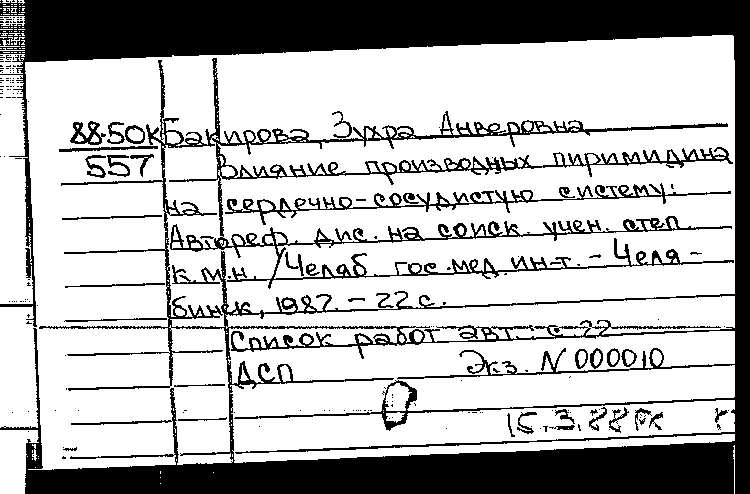 88-50К Бакирова, Зухра Анверовна
557 Влияние производных пиримидина
на сердечно-сосудистую систему:
Автореф. дис. на соиск. учен. степ.
к.м.н. /Челяб. гос. мед. ин-т. - Челя-
бинск, 1987. - 22 с.
Список работ авт.: с. 22
ДСП Экз. N 000010
15.3.88